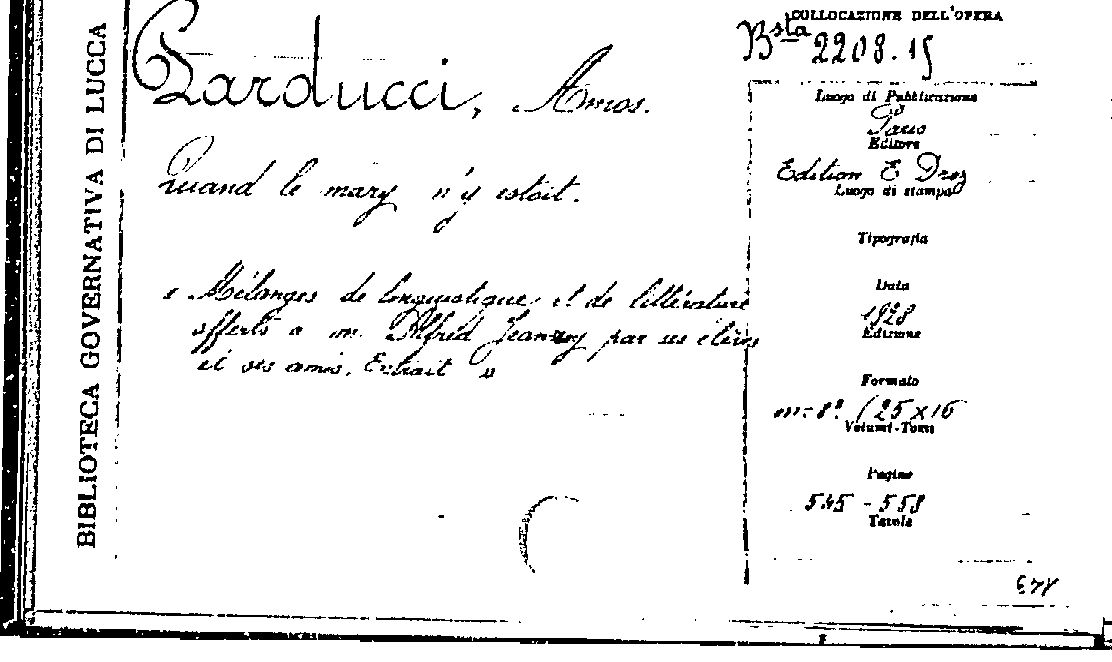 BIBLIOTECA GOVERNATIVA DI LUCCA
Parducci, Amos.
Quand le mary n'y estoit.
« Mélanges de linguistique et de littérature
offerts a m. Alfred Jeanroy par ses élèves
et ses amis. Extrait »
COLLOCAZIONE DELL'OPERA
Bsta 2208.15
Luogo di Pubblicazione
Paris
Editore
Edition E Droz
Luogo di stampa
Tipografia
Data
1928
Edizione
Formato
m-8° (25x16
Volumi-Tomi
Pagine
545 - 558
Tavole
678